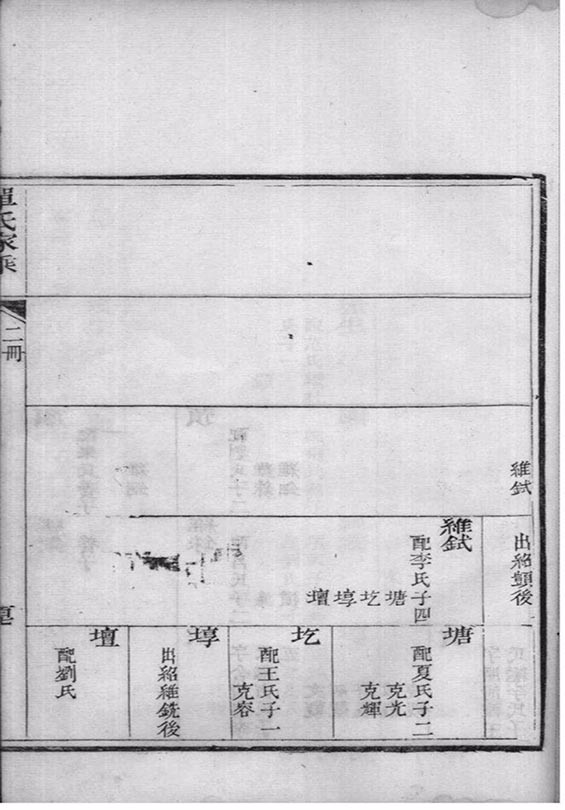 維鉽
出紹顗後
維鉽
配李氏子四
塘圪埻壇
塘
配夏氏子二
克光
克輝
圪
配王氏子一
克容
埻
出紹維銑後
壇
配劉氏
單氏家乘
二冊